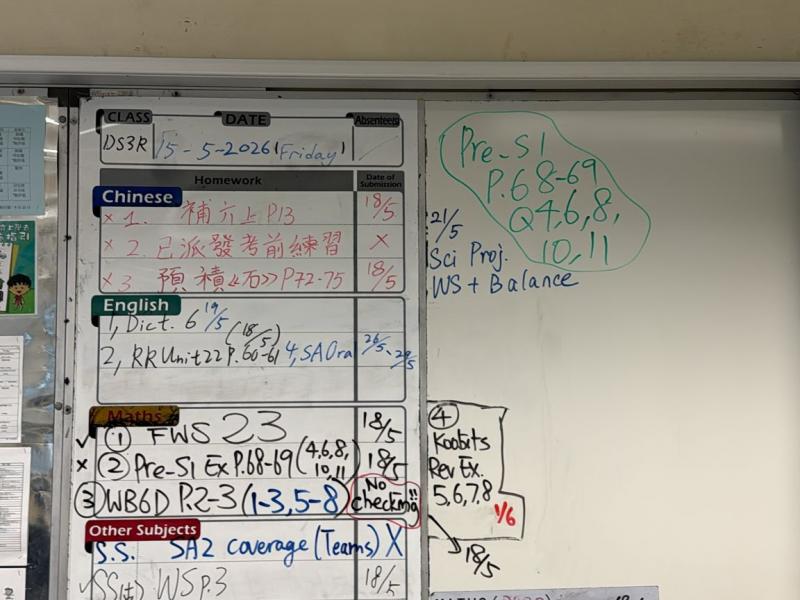 CLASS DATE Absentees
DS3R 15-5-2026 (Friday)
Homework Date of Submission
Chinese
× 1. 補六上 P13 18/5
× 2. 已派發考前練習 ×
× 3. 預積《石》P72-75 18/5
English
1, Dict. 6 19/5
(18/5)
2, RR Unit 22 P.60-61 4, SA Oral 26/5, 29/5
Maths
✓ ① FWS 23 18/5
× ② Pre-S1 Ex P.68-69 (4,6,8, 10,11) 18/5
③ WB6D P.2-3 (1-3, 5-8) No checking!!
Other Subjects
S.S. SA2 coverage (Teams) X
WS P.3 18/5
Pre-S1
P.68-69
Q4,6,8,
10,11
21/5
Sci Proj.
WS + Balance
④
Koobits
Rev Ex.
5,6,7,8
1/6
18/5